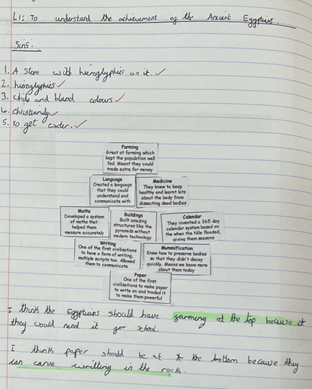 LI: To understand the achievement of the Ancient Egyptians.
5in5.
1. A stone with hieroglyphics on it.
2. hieroglyphics
3. and bland colours
4. Christianity
5. To get
Farming
Great at farming which
kept the population well
fed. Meant they could
trade extra for money
Language
Created a language
that they could
understand and
communicate with
Medicine
They knew to keep
healthy and learnt lots
about the body from
dissecting dead bodies
Maths
Developed a system
of maths that
helped them
measure accurately
Buildings
Built amazing
structures like the
pyramids without
modern technology
Calendar
They invented a 365 day
calendar system based on
the when the Nile flooded,
giving them seasons
Writing
One of the first civilisations
to have a form of writing,
multiple scripts too. Allowed
them to communicate
Mummification
Knew how to preserve bodies
so that they didn't decay
quickly. Means we know more
about them today
Paper
One of the first
civilisations to make paper
to write on and traded it
to make them powerful
I think the Egyptians should have farming at the top because it
they would need it for
I think paper should be at the bottom because they
can carve writting in the rock.